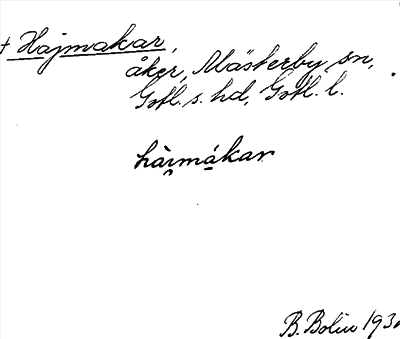 † Hajmakar,
åker, Mästerby sn,
Gotl. s. hd, Gotl. l.
hài̯mákar
B. Bolin